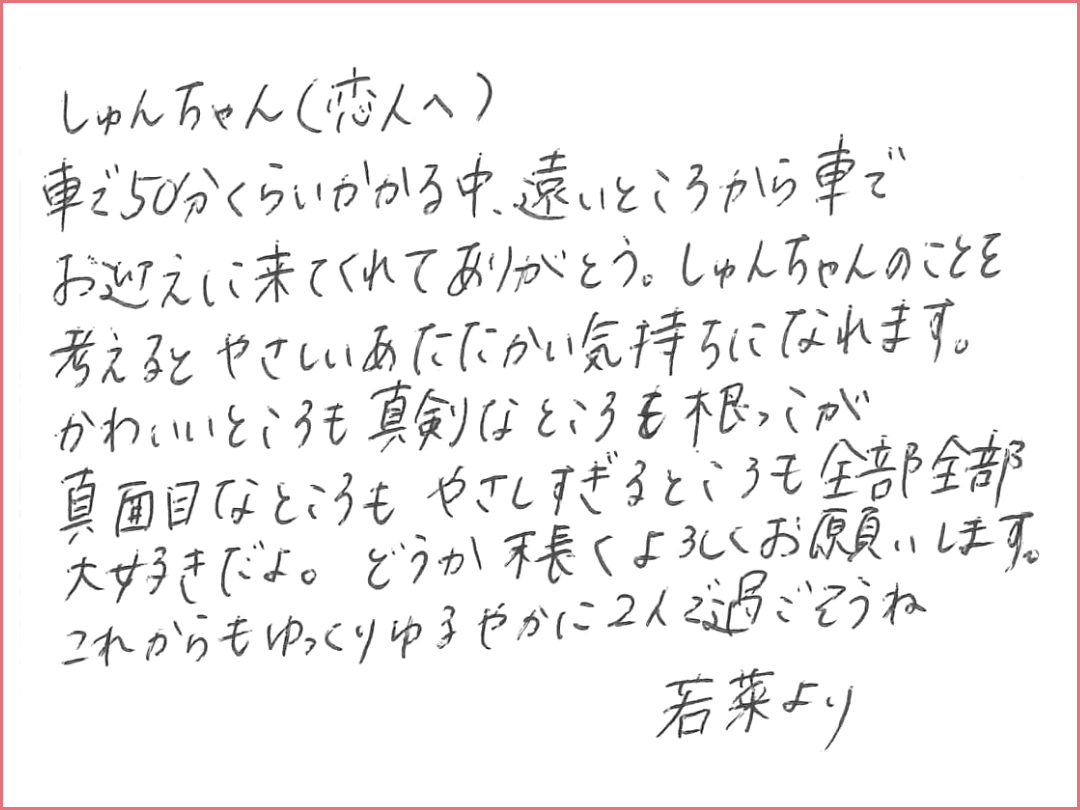 しゅんちゃん(恋人へ)
車で50分くらいかかる中、遠いところから車で
お迎えに来てくれてありがとう。しゅんちゃんのことを
考えるとやさしいあたたかい気持ちになれます。
かわいいところも真剣なところも根っこが
真面目なところもやさしすぎるところも全部全部
大好きだよ。どうか末長くよろしくお願いします。
これからもゆっくりゆるやかに2人で過ごそうね
若菜より